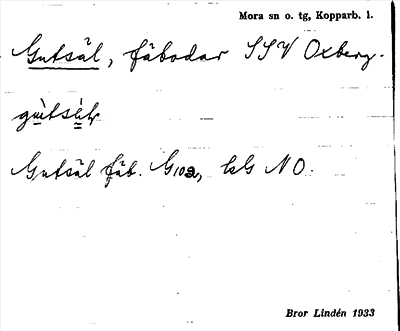 Mora sn o. tg, Kopparb. l.
Gutsäl, fäbodar SSV Oxberg.
Gutsäl fäb. G10a, bG NO.
Bror Lindén 1933